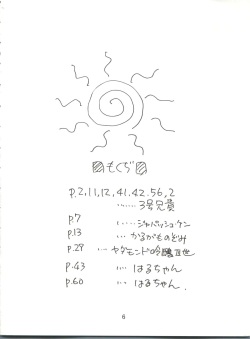 ▨もくぢ▨
p.2,11,12,41.42.56,2
‥‥‥3号兄貴
p.7 ‥‥‥ジャパッシュ・ケン
p.13 ‥‥かるがものとみ
p.29 ‥‥ヤダモンド吟
p.43 ‥‥はるちゃん
p.60 ‥‥はるちゃん.
6